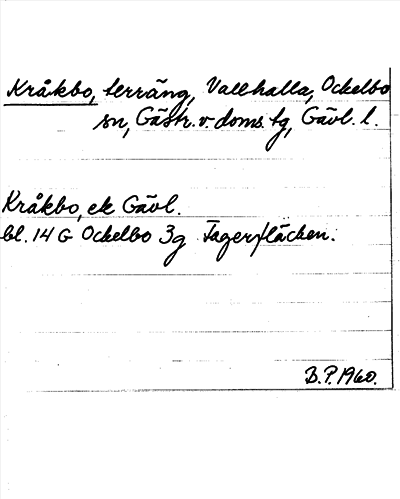 Kråkbo, terräng, Vallhalla, Ockelbo
sn, Gästr. v. doms. tg, Gävl. l.
Kråkbo, ek Gävl.
bl. 14 G Ockelbo 3g Tagerfläcken.
B.P. 1960.